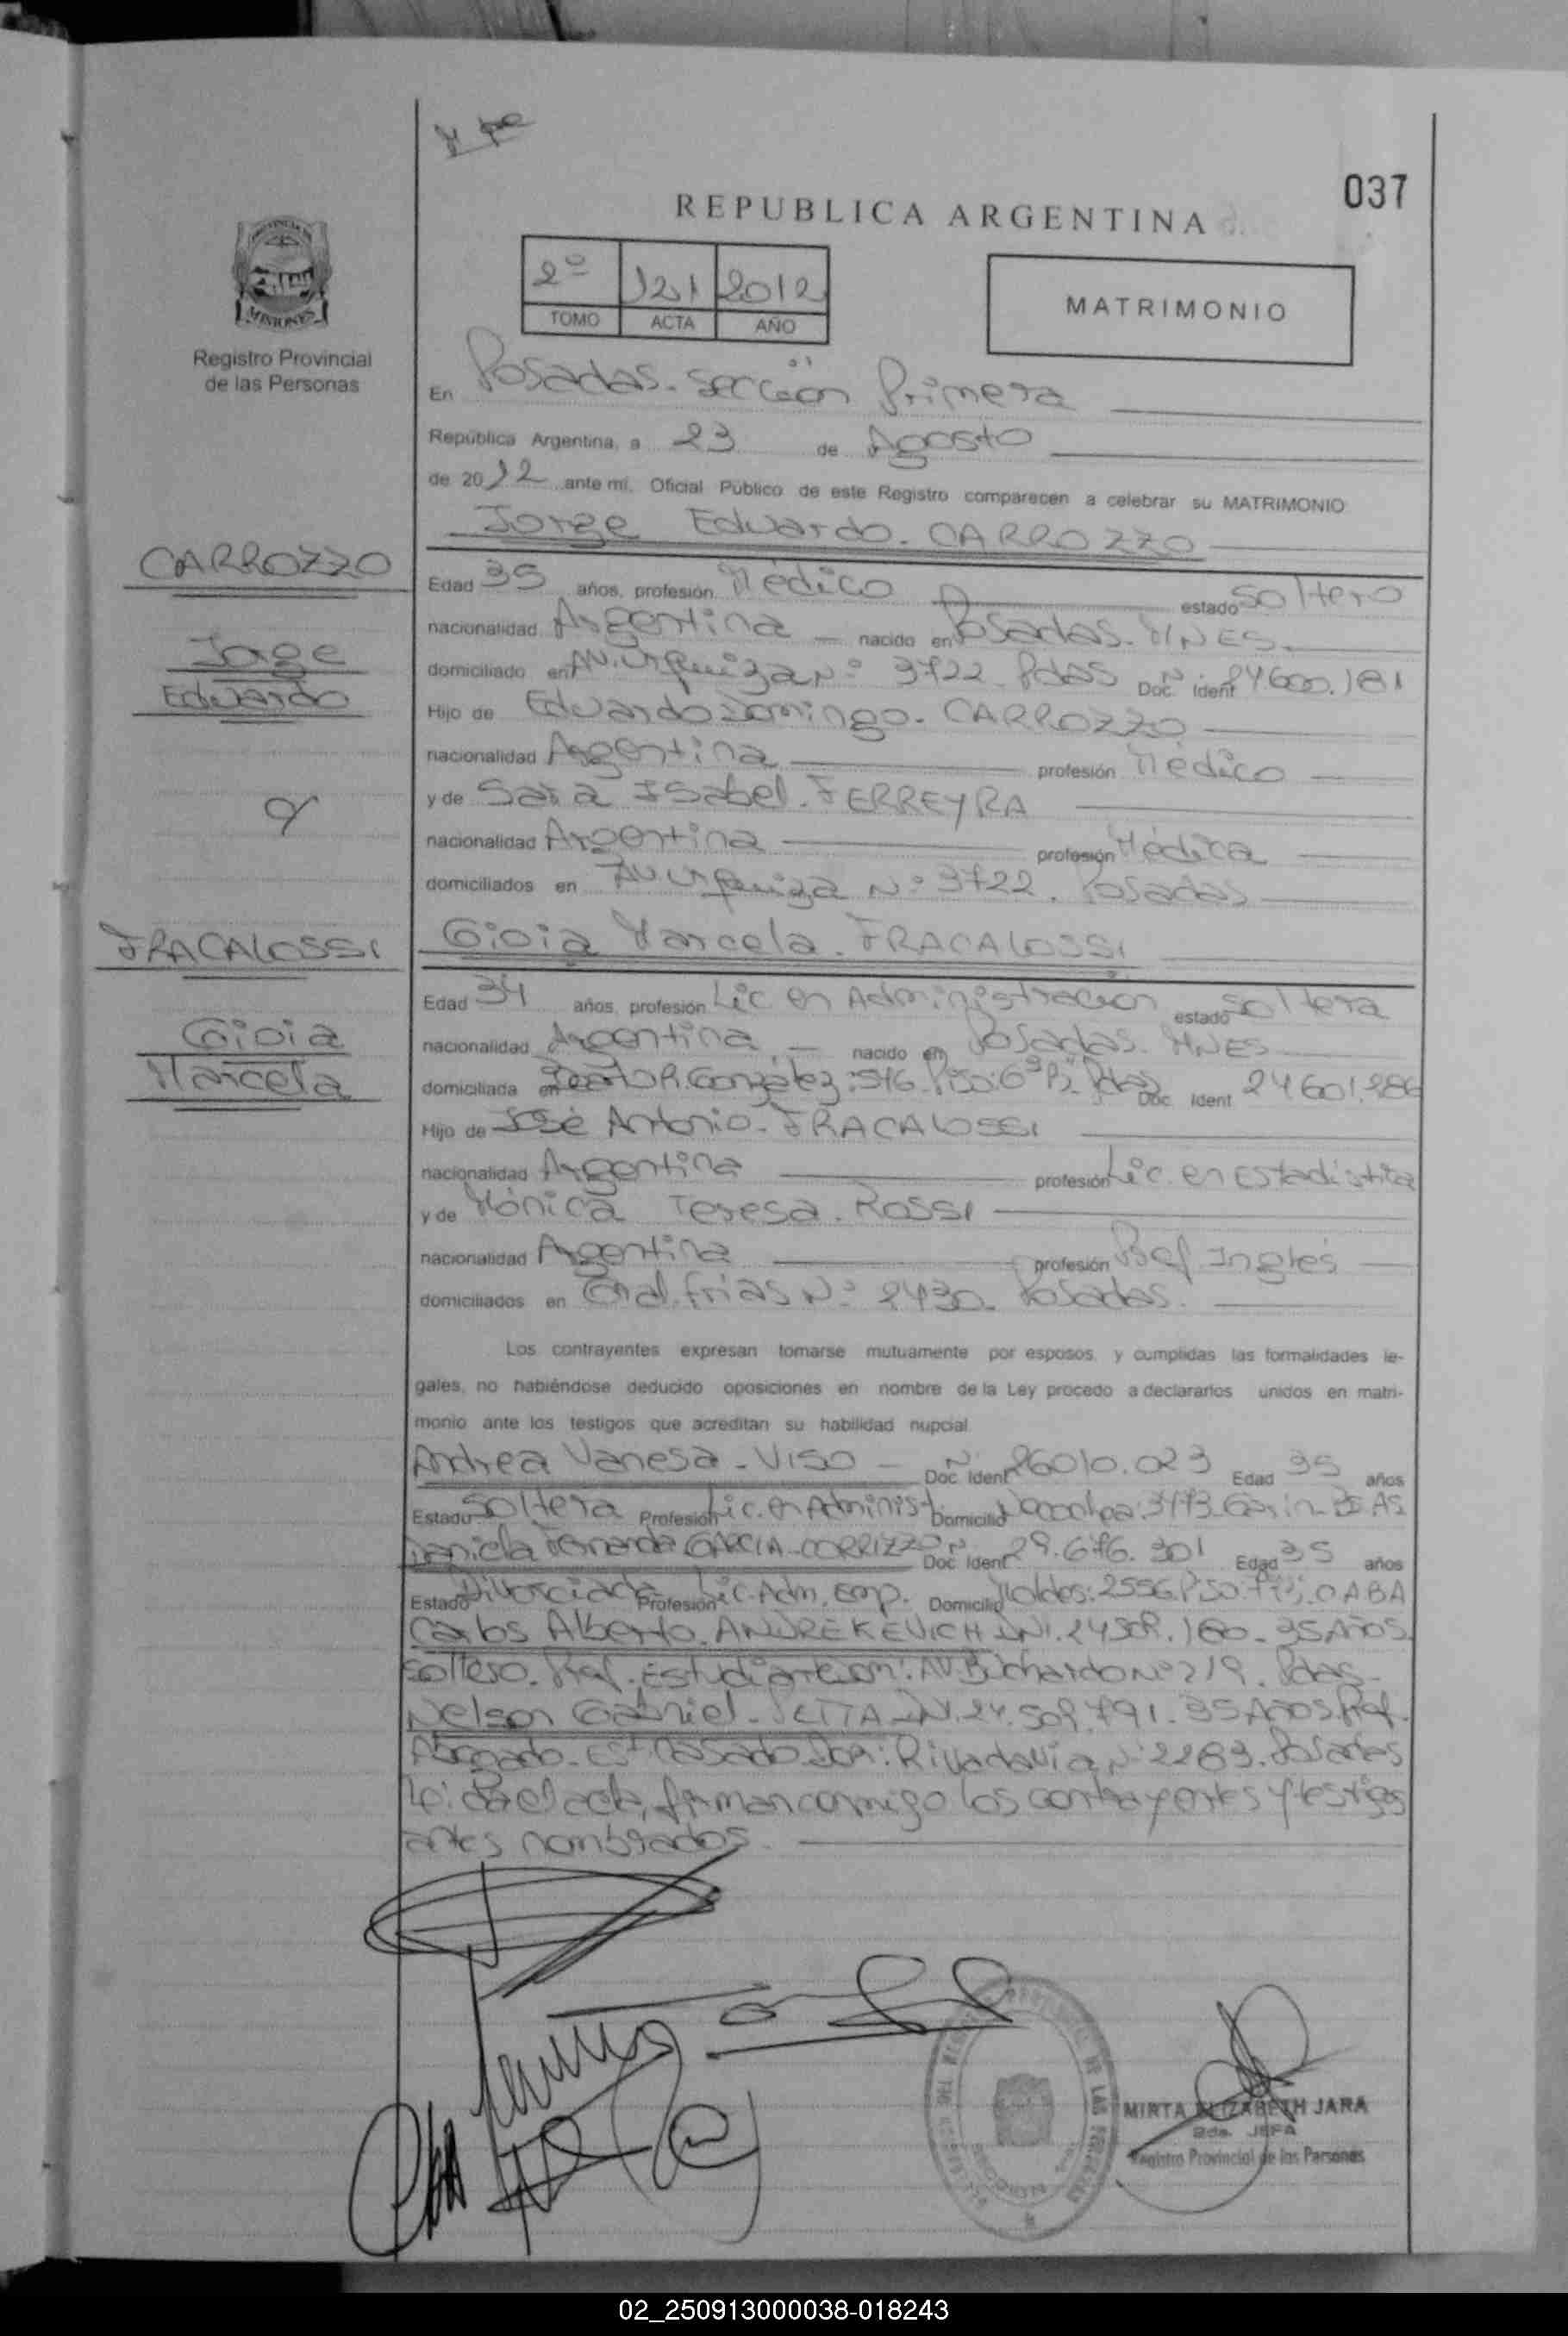 037
REPUBLICA ARGENTINA
2º 121 2012
TOMO ACTA AÑO
MATRIMONIO
PROVINCIA DE
MISIONES
Registro Provincial
de las Personas
En Posadas. Sección Primera
República Argentina, a 23 de Agosto
de 2012 ante mi, Oficial Público de este Registro comparecen a celebrar su MATRIMONIO
Jorge Eduardo. CARROZZO
CARROZZO
Jorge
Eduardo
y
FRACALOSSI
Gioia
Marcela
Edad 35 años, profesión Médico estado Soltero
nacionalidad Argentina nacido en Posadas. MNES.
domiciliado en AV. Urquiza Nº 3722. Pdas Doc. Ident Nº 24.600.181
Hijo de Eduardo Domingo. CARROZZO
nacionalidad Argentina profesión Médico
y de Sara Isabel. FERREYRA
nacionalidad Argentina profesión Médica
domiciliados en AV. Urquiza Nº 3722. Posadas
Gioia Marcela. FRACALOSSI
Edad 34 años, profesión Lic en Administracion estado Soltera
nacionalidad Argentina nacido en Posadas. MNES
domiciliada en R. González: 516. Piso: 6º Pdas Doc Ident 24601.286
Hijo de José Antonio. FRACALOSSI
nacionalidad Argentina profesión Lic. en Estadística
y de Mónica Teresa. ROSSI
nacionalidad Argentina profesión Prof. Inglés
domiciliados en Gral. Frías Nº 2430. Posadas.
Los contrayentes expresan tomarse mutuamente por esposos, y cumplidas las formalidades le-
gales, no habiéndose deducido oposiciones en nombre de la Ley procedo a declararlos unidos en matri-
monio ante los testigos que acreditan su habilidad nupcial.
Andrea Vanesa. VISO Doc Ident Nº 26010.023 Edad 35 años
Estado Soltera Profesión Lic. en Administ. Domicilio 3473 Garín. BS AS
Daniela Fernanda GARCIA CORRIZZO Doc Ident Nº 29.676.301 Edad 35 años
Estado Divorciada Profesión Lic. Adm. Emp. Domicilio Moldes: 2556. Piso: CABA
Carlos Alberto. ANDREKEVICH DNI. 24.509.160. 35 Años.
Soltero. Prof. Estudiante Dom: AV. Buchardo Nº 219. Pdas.
Nelson Gabriel. PETTA DNI. 24.509.791. 35 Años. Prof.
Abogado. Est. Casado Dom: Rivadavia Nº 2283. Posadas
Leída el acta, firman conmigo los contrayentes y testigos
antes nombrados.
MIRTA ELIZABETH JARA
2da. JEFA
Registro Provincial de las Personas
02_250913000038-018243